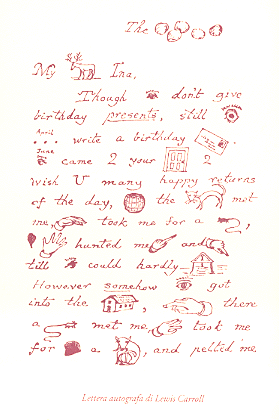 The
My Ina,
Though don't give
birthday presents, still
April
... write a birthday
June
came 2 your 2
wish U many happy returns
of the day, the met
me, took me for a ,
My hunted me and
till could hardly
However somehow got
into the , there
a met me, took me
for a , and pelted me
Lettera autografa di Lewis Carroll